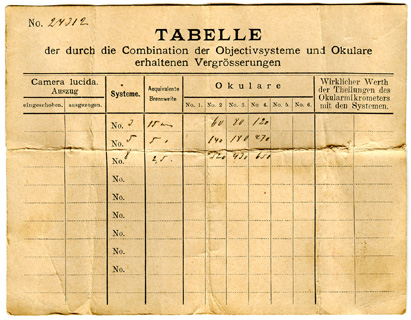 No. 24312
TABELLE
der durch die Combination der Objectivsysteme und Okulare
erhaltenen Vergrösserungen
Camera lucida. Auszug
eingeschoben. ausgezogen.
Systeme.
Aequivalente Brennweite
Okulare
No. 1. No. 2 No. 3 No. 4. No. 5. No. 6.
Wirklicher Werth der Theilungen des Okularmikrometers mit den Systemen.
No. 3 60 80 120
No. 5 140 180 270
No. 8 430 650
No.
No.
No.
No.
No.
No.